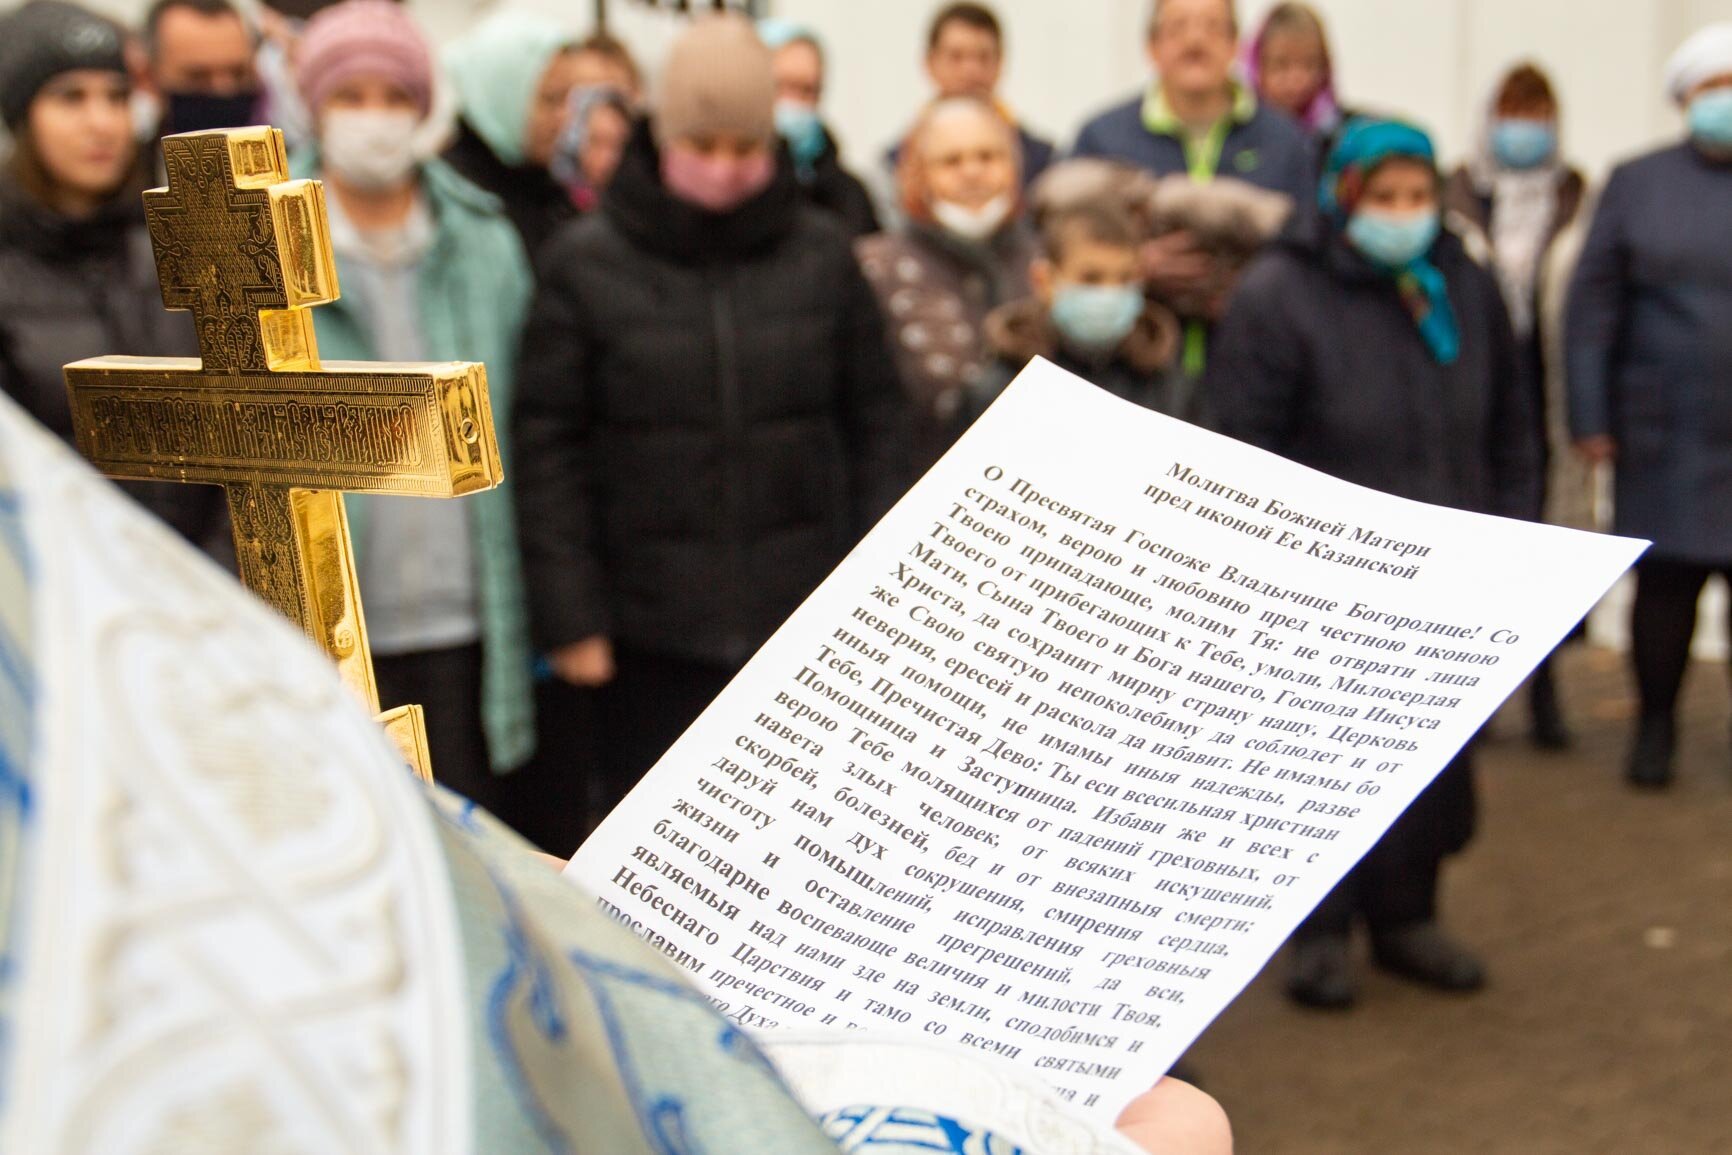 Молитва Божией Матери
пред иконой Ее Казанской
О Пресвятая Госпоже Владычице Богородице! Со
страхом, верою и любовию пред честною иконою
Твоею припадающе, молим Тя: не отврати лица
Твоего от прибегающих к Тебе, умоли, Милосердая
Мати, Сына Твоего и Бога нашего, Господа Иисуса
Христа, да сохранит мирну страну нашу, Церковь
же Свою святую непоколебиму да соблюдет и от
неверия, ересей и раскола да избавит. Не имамы бо
иныя помощи, не имамы иныя надежды, разве
Тебе, Пречистая Дево: Ты еси всесильная христиан
Помощница и Заступница. Избави же и всех с
верою Тебе молящихся от падений греховных, от
навета злых человек, от всяких искушений,
скорбей, болезней, бед и от внезапныя смерти;
даруй нам дух сокрушения, смирения сердца,
чистоту помышлений, исправления греховныя
жизни и оставление прегрешений, да вси,
благодарне воспевающе величия и милости Твоя,
являемыя над нами зде на земли, сподобимся и
Небеснаго Царствия и тамо со всеми святыми
прославим пречестное и
Духа